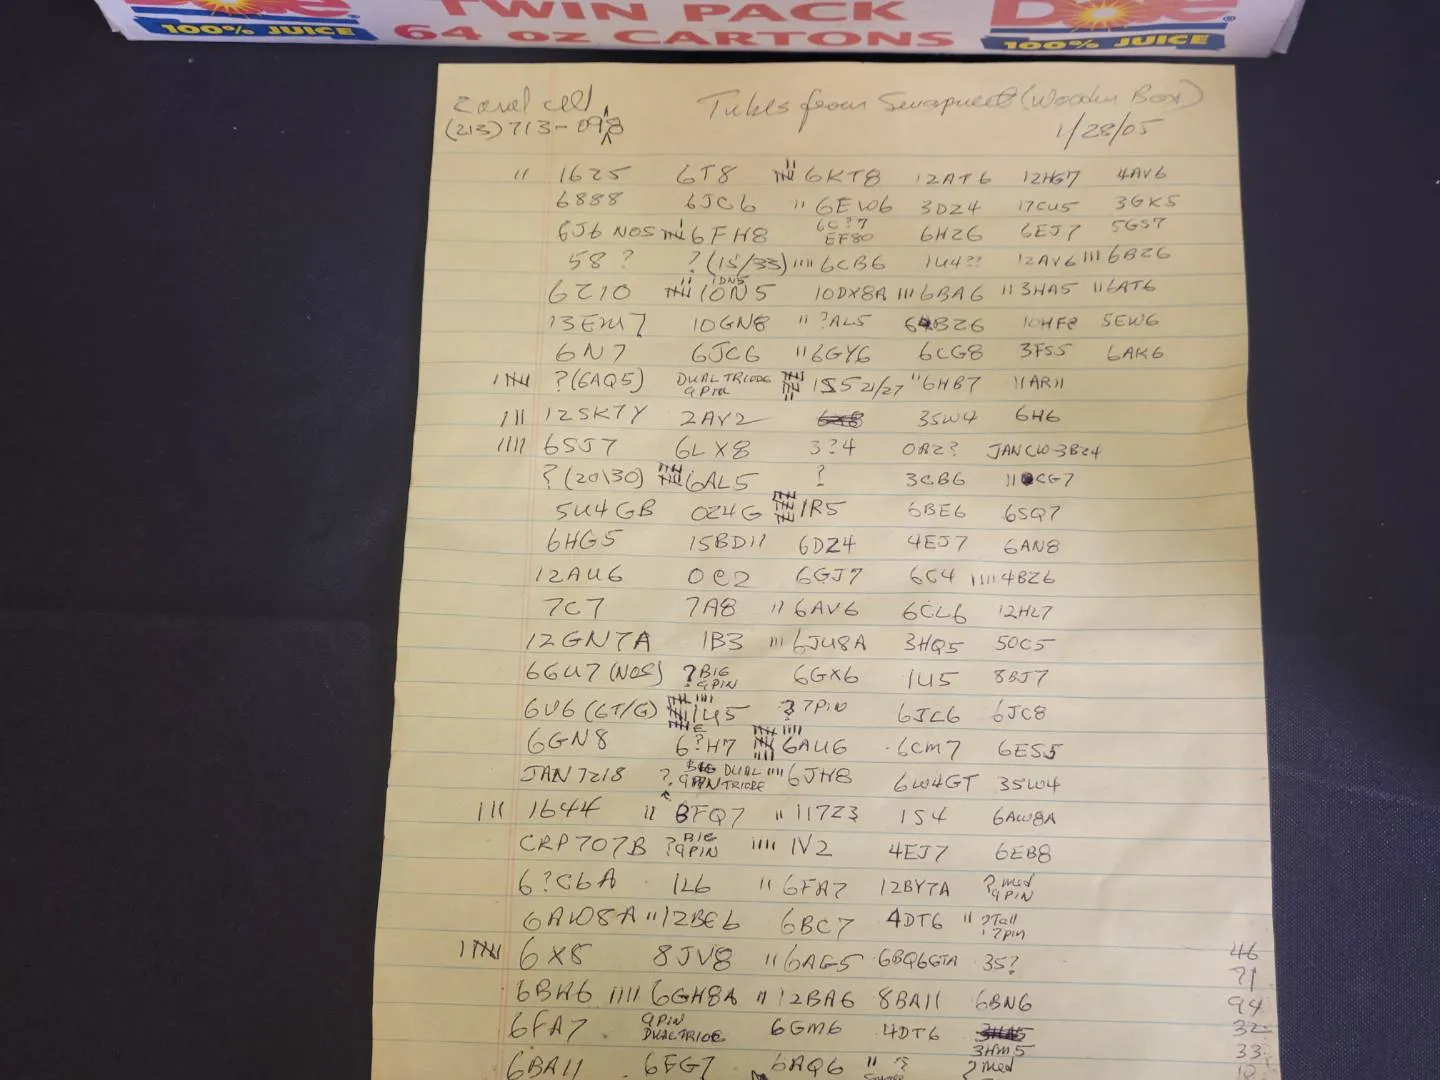 DOLE TWIN PACK DOLE
100% JUICE 64 oz CARTONS 100% JUICE
cell Tubes from Swapmeet (Wooden Box)
(213) 713-
1/28/05
11 1625 6T8 6KT8 12AT6 12HG7 4AV6
6888 6JC6 11 6EW6 3DZ4 17CU5 3GK5
6J6 NOS 6FH8 6C?7 EF80 6HZ6 6EJ7 5GS7
58 ? ? (15/33) 1111 6CB6 1U4?? 12AV6 111 6BZ6
6Z10 10N5 1DN5 10DX8A 111 6BA6 11 3HA5 11 6AT6
13EM7 10GN8 11 ?AL5 6BZ6 10HF8 5EW6
6N7 6JC6 11 6GY6 6CG8 3FS5 6AK6
?(6AQ5) DUAL TRIODE 9 PIN 1S5 21/27 11 6HB7 11AR11
111 12SK7Y 2AV2 6X8 35W4 6H6
1111 6SJ7 6LX8 3?4 OA2? JAN CW-3B24
? (20\30) 6AL5 ? 3CB6 11 CG7
5U4GB OZ4G 1R5 6BE6 6SQ7
6HG5 15BD11 6DZ4 4EJ7 6AN8
12AU6 OC2 6GJ7 6C4 1111 4BZ6
7C7 7A8 11 6AV6 6CL6 12HL7
12GN7A 1B3 111 6JU8A 3HQ5 50C5
6GU7 (NOS) ? BIG 9PIN 6GX6 1U5 8BJ7
6V6 (GT/G) 1U5 ? 7PIN 6JC6 6JC8
6GN8 6?H7 6AU6 6CM7 6ES5
JAN 7218 ? BIG DUAL 9PIN TRIODE 1111 6JH8 6W4GT 35W4
111 1644 11 8FQ7 11 117Z3 1S4 6AW8A
CRP707B ? BIG 9PIN 1111 1V2 4EJ7 6EB8
6?C6A 1L6 11 6FA7 12BY7A ? med 9PIN
6AW8A 11 12BE6 6BC7 4DT6 11 ?Tall ?7pin
6X8 8JV8 11 6AG5 6BQ6GTA 35? 46
71
6BH6 1111 6GH8A 11 12BA6 8BA11 6BN6 94
6FA7 9PIN DUAL TRIODE 6GM6 4DT6 32
3HM5 33
6BA11 6FG7 6AQ6 11 ? ? med